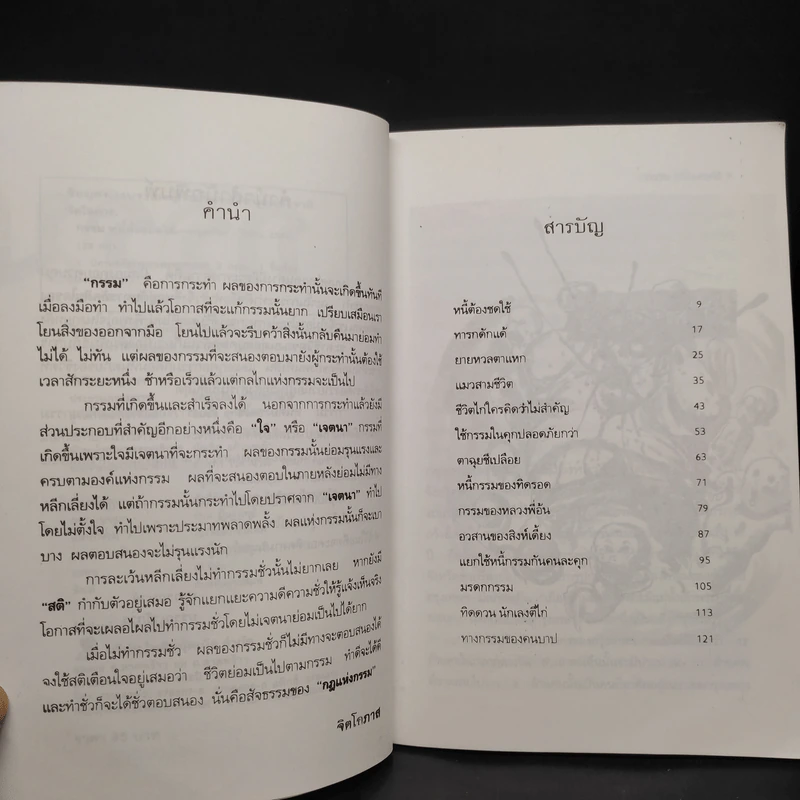 คำนำ
“กรรม” คือการกระทำ ผลของการกระทำนั้นจะเกิดขึ้นทันที
เมื่อลงมือทำ ทำไปแล้วโอกาสที่จะแก้กรรมนั้นยาก เปรียบเสมือนเรา
โยนสิ่งของออกจากมือ โยนไปแล้วจะรีบคว้าสิ่งนั้นกลับคืนมาย่อมทำ
ไม่ได้ ไม่ทัน แต่ผลของกรรมที่จะสนองตอบมายังผู้กระทำนั้นต้องใช้
เวลาสักระยะหนึ่ง ช้าหรือเร็วแล้วแต่กลไกแห่งกรรมจะเป็นไป
กรรมที่เกิดขึ้นและสำเร็จลงได้ นอกจากการกระทำแล้วยังมี
ส่วนประกอบที่สำคัญอีกอย่างหนึ่งคือ “ใจ” หรือ “เจตนา” กรรมที่
เกิดขึ้นเพราะใจมีเจตนาที่จะกระทำ ผลของกรรมนั้นย่อมรุนแรงและ
ครบตามองค์แห่งกรรม ผลที่จะสนองตอบในภายหลังย่อมไม่มีทาง
หลีกเลี่ยงได้ แต่ถ้ากรรมนั้นกระทำไปโดยปราศจาก “เจตนา” ทำไป
โดยไม่ตั้งใจ ทำไปเพราะประมาทพลาดพลั้ง ผลแห่งกรรมนั้นก็จะเบา
บาง ผลตอบสนองจะไม่รุนแรงนัก
การละเว้นหลีกเลี่ยงไม่ทำกรรมชั่วนั้นไม่ยากเลย หากยังมี
“สติ” กำกับตัวอยู่เสมอ รู้จักแยกแยะความดีความชั่วให้รู้แจ้งเห็นจริง
โอกาสที่จะเผลอไผลไปทำกรรมชั่วโดยไม่เจตนาย่อมเป็นไปได้ยาก
เมื่อไม่ทำกรรมชั่ว ผลของกรรมชั่วก็ไม่มีทางจะตอบสนองได้
จงใช้สติเตือนใจอยู่เสมอว่า ชีวิตย่อมเป็นไปตามกรรม ทำดีจะได้ดี
และทำชั่วก็จะได้ชั่วตอบสนอง นั่นคือสัจธรรมของ “กฎแห่งกรรม”
จิตโคภาส
สารบัญ
หนี้ต้องชดใช้ 9
ทารกดักแด้ 17
ยายหวลตาแหก 25
แมวสามชีวิต 35
ชีวิตไก่ใครคิดว่าไม่สำคัญ 43
ใช้กรรมในคุกปลอดภัยกว่า 53
ตาฉุยชีเปลือย 63
หนี้กรรมของทิดรอด 71
กรรมของหลวงพี่อ้น 79
อวสานของสิงห์เตี้ยง 87
แยกใช้หนี้กรรมกันคนละคุก 95
มรดกกรรม 105
ทิดดวน นักเลงตีไก่ 113
ทางกรรมของคนบาป 121